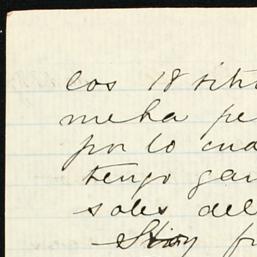 los 18 siti
me ha pe
por lo cua
tengo gan
soles del
Stoy